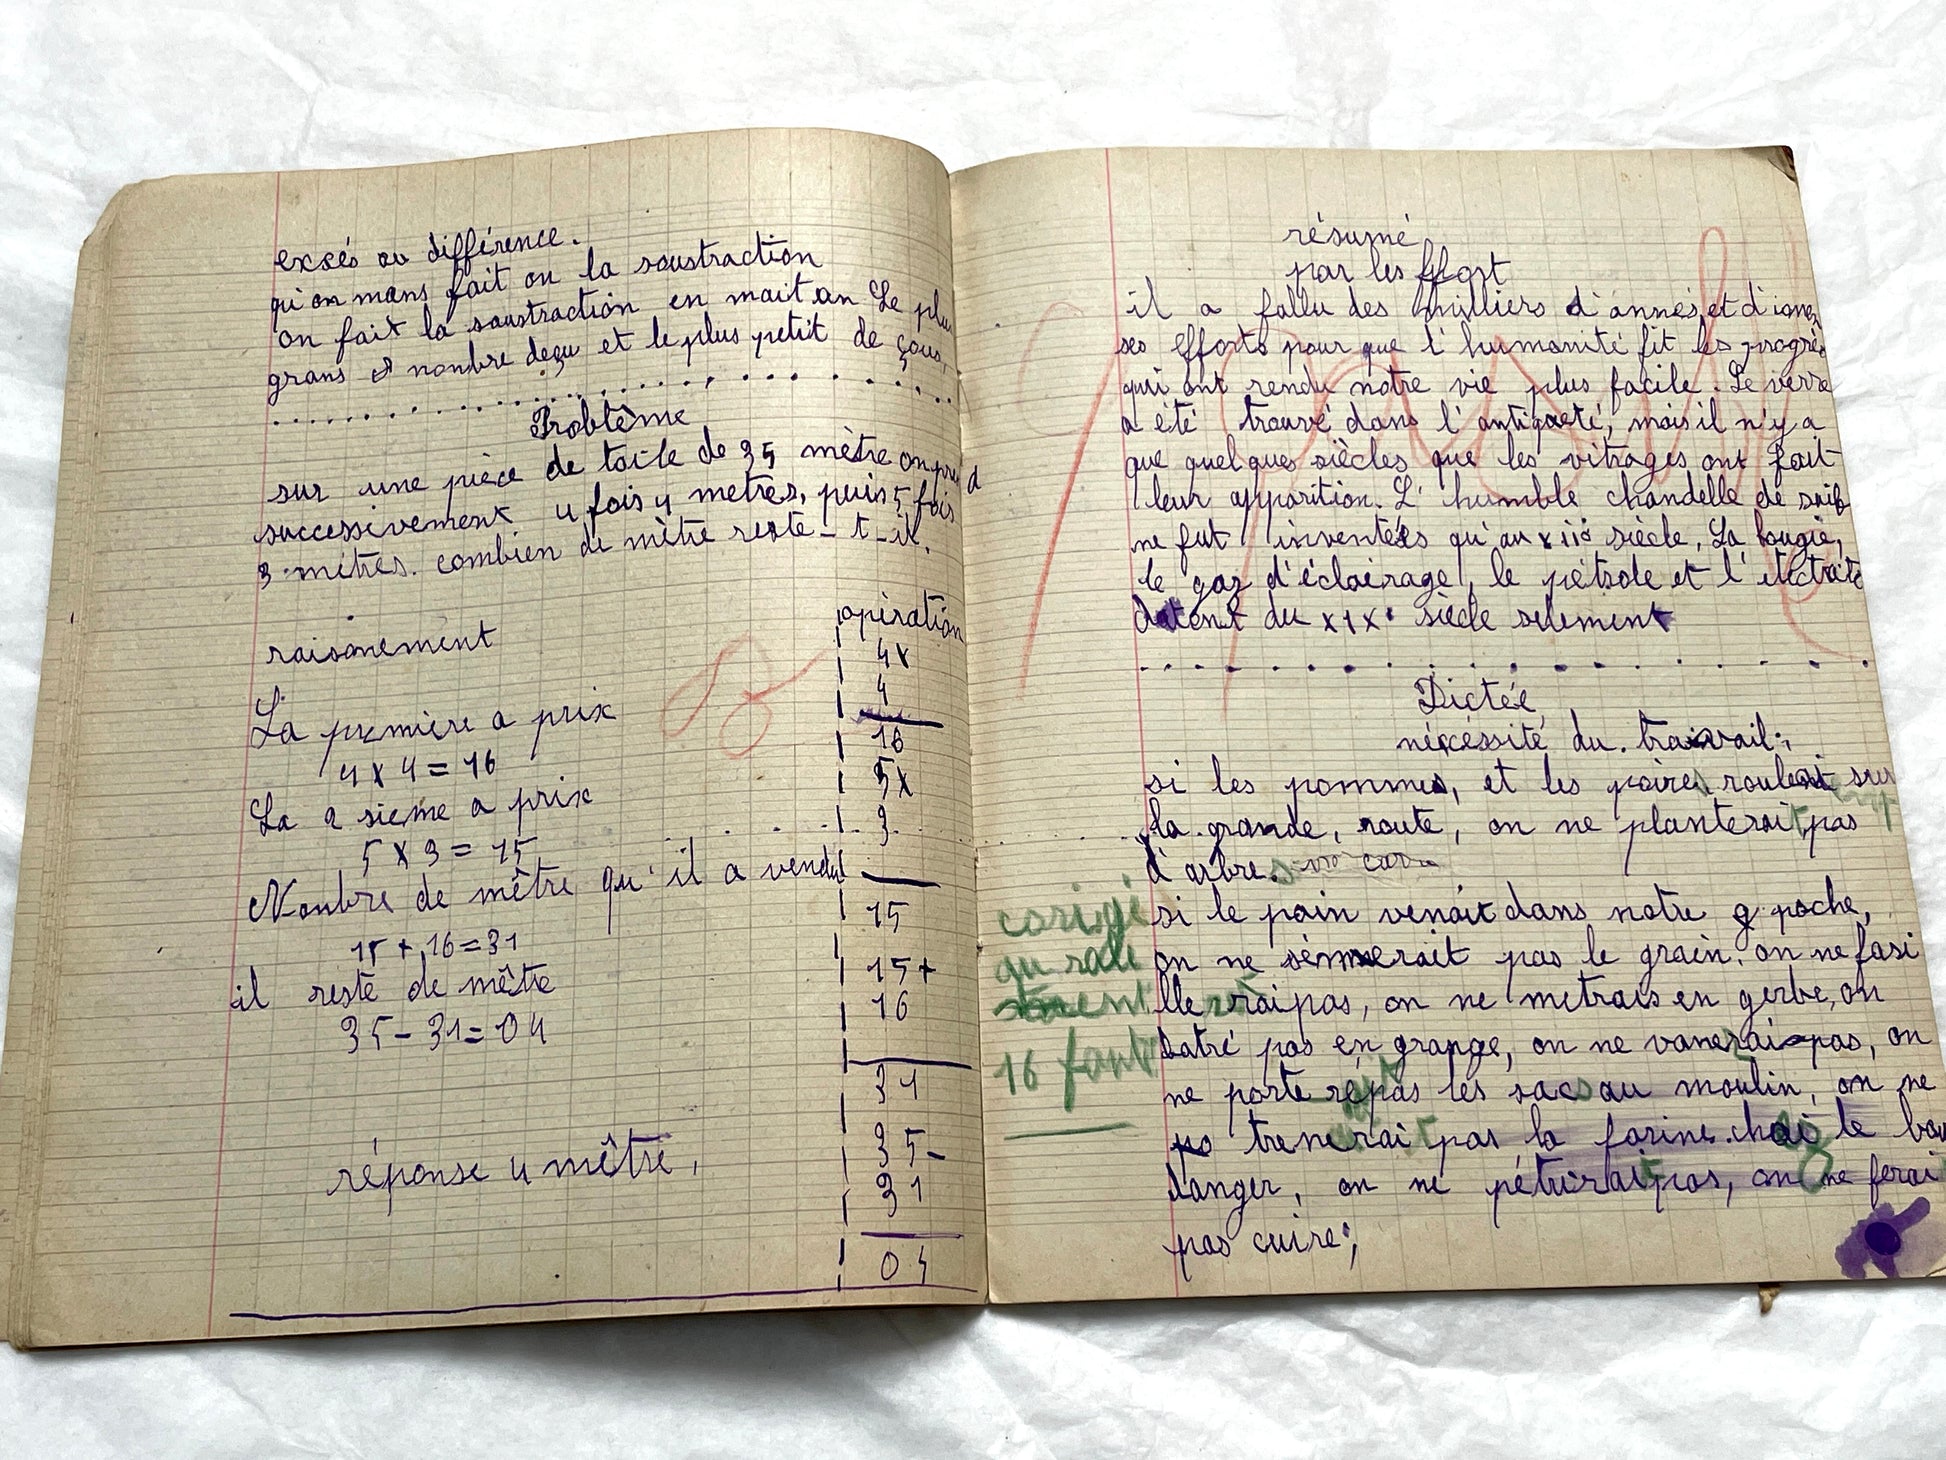 excés ou différence.
qu'on mans fait on la soustraction
on fait la soustraction en mait an Le plu
grans nonbre deçu et le plus petit de çous,
Problême
sur une pièce de toile de 35 mètre on pre d
successivement 4 fois 4 metres, puis 5 fois
3 mètres. combien de mètre reste-t-il.
raisonement
opération
La premiere a prix
4 x 4 = 16
La 2 sieme a prix
5 x 3 = 15
Nonbre de mêtre qu'il a vendu
15 + 16 = 31
il reste de mêtre
35 - 31 = 04
réponse 4 mêtre,
4x
4
16
5x
3
15
15+
16
31
35-
31
04
résumé
par les ffort
il a fallu des milliers d'années et d'imen
ses efforts pour que l'humanité fit les progrès
qui ont rendu nôtre vie plus facile. Le verre
a été trouvé dans l'antiqueté, mais il n'y a
que quelques siècles que les vitrages ont fait
leur apparition. L'humble chandelle de suif
ne fut inventées qu'au xiiie siècle, La bougie,
le gaz d'éclairage, le pétrole et l'
datent du x1xe siècle selement
Dictée
nécéssité du. travail;
si les pommes, et les poires roulent sur
la grande, route, on ne planterait pas
d'arbre.
si le pain venait dans notre g poche,
on ne sèmerait pas le grain. on ne fasi
lle rai pas, on ne metrais en gerbe, on
batré pas en grange, on ne vanerai pas, on
ne porte répas les sacs au moulin, on ne
trenerai pas la farine. chai le bou
langer, on ne pétrirait pas, on ne ferai
pas cuire;
corigé
16 faute